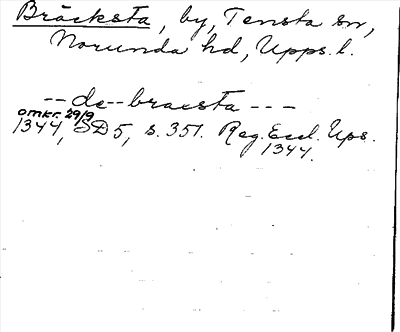 Bräcksta, by, Tensta sn,
Norunda hd, Upps. l.
-- de -- bracsta ---
omkr. 29/9
1344, SD 5, s. 351. Reg. Eccl. Ups.
1344.